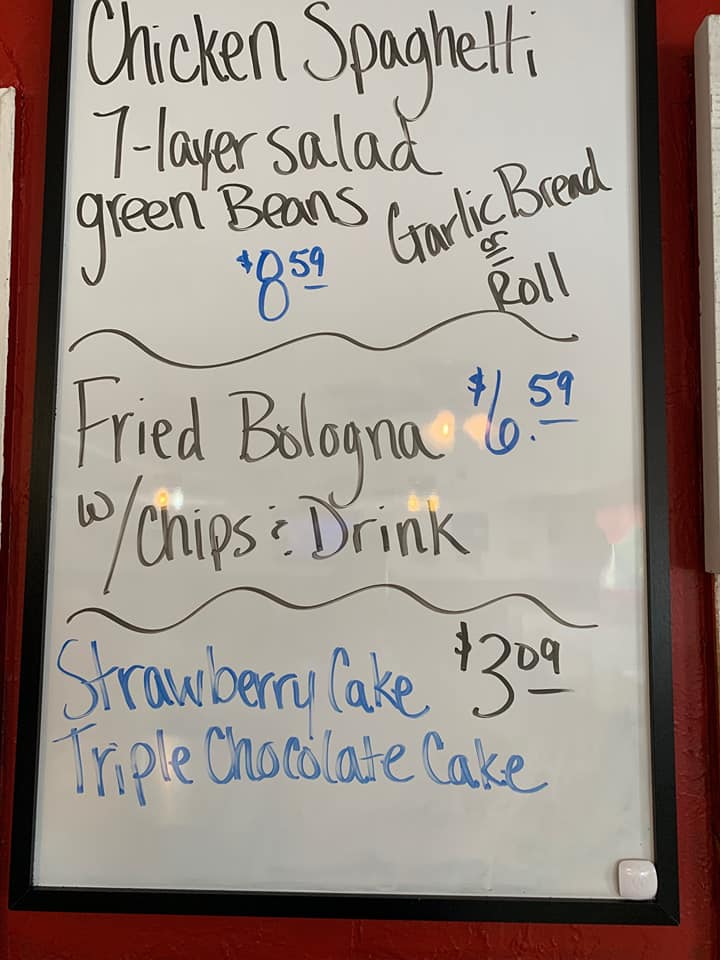 Chicken Spaghetti
7-layer salad
green Beans
Garlic Bread
or
Roll
$8.59
Fried Bologna $6.59
w/chips & Drink
Strawberry Cake $3.09
Triple Chocolate Cake